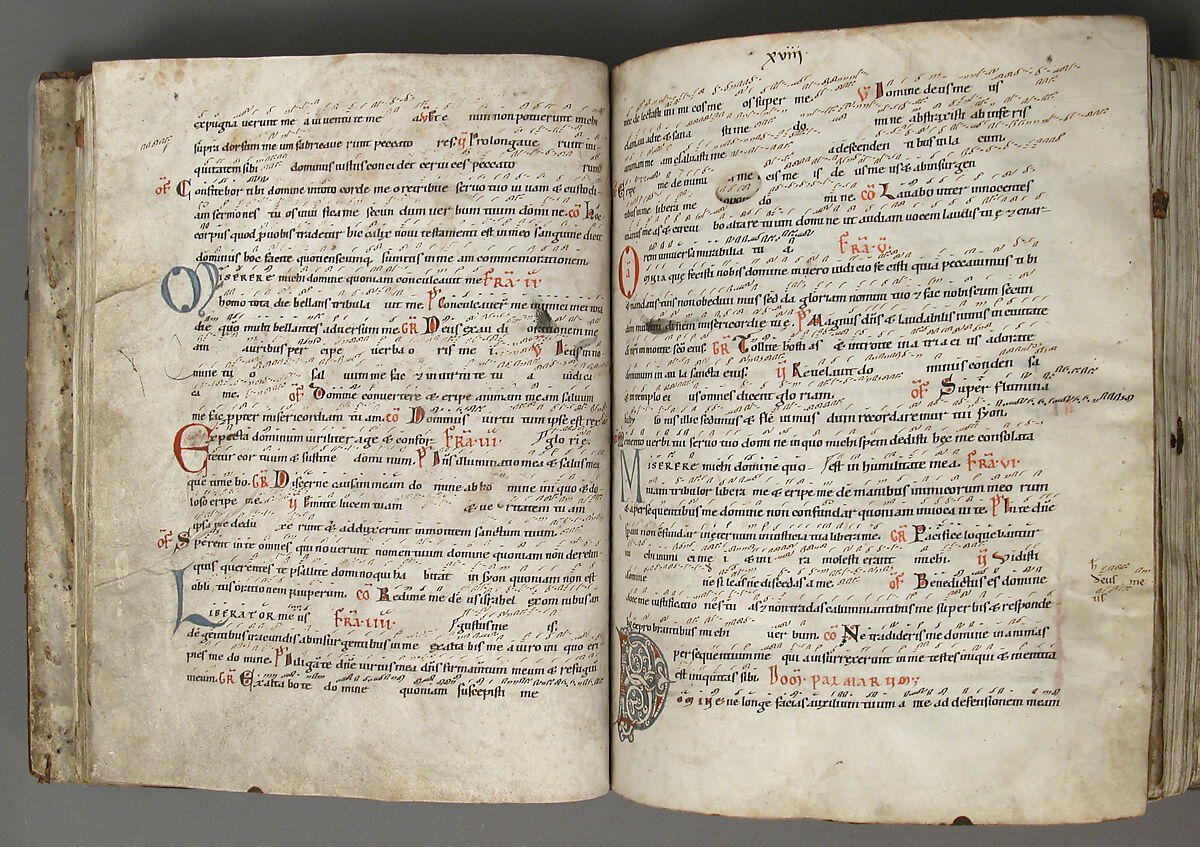 expugnauerunt me a iuuentute me a V et e nim non potuerunt michi
supra dorsum meum fabricaue runt peccato res. V Prolongaue runt ini-
quitatem sibi dominus iustus conci det ceruices peccato rum
Of Confitebor tibi domine in toto corde meo retribue seruo tuo uiuam & custodi-
am sermones tuos uiui fica me secun dum uer bum tuum domine. Co Hoc
corpus quod pro uobis tradetur hic calix noui testamenti est in meo sanguine dicit
dominus hoc facite quotienscumq sumitis in meam commemorationem.
MISERERE michi domine quoniam conculcauit me Fra. II.
homo tota die bellans tribula uit me. P Conculcauer me inimici mei tota
die quia multi bellantes aduersum me. GR Deus exau di orationem me
am auribus per cipe uerba o ris me i. V Deus in no-
mine tu o sal uum me fac & in uirtu te tu a iudi ca
me. Of Domine conuertere & eripe animam meam saluum
me fac propter misericordiam tuam. Co Dominus uirtu tum ipse est rex
Expecta dominum uiriliter age & confor- Fra. III. glo rie.
tetur cor tuum & sustine domi num. P Dns illuminatio mea & salus mea
que time bo. GR Discerne causam meam do mine ab ho mine iniquo & do-
loso eripe me. V Emitte lucem tuam & ue ritatem tu am
ipsa me dedu xe runt & adduxerunt in montem sanctum tuum.
Of Sperent in te omnes qui nouerunt nomen tuum domine quoniam non derelin-
quis querentes te psallite domino qui ha bitat in syon quoniam non est
oblitus orationem pauperum. Co Redime me deus israhel ex omnibus an
LIBERATOR meus Fra. IIII. gustiis me is.
de gentibus iracundis ab insurgentibus in me exalta bis me a uiro ini quo eri-
pies me do mine. P Diligam te dne uirtus mea dns firmamentum meum & refugiu
meum. GR Exalta bo te do mine quoniam suscepisti me
xviii
nec delectasti inimicos me os super me. V Domine deus me us
clamaui ad te & sana sti me do mi ne abstraxisti ab inferis
animam me am saluasti me a descenden ti bus in la cum.
Eripe me de inimi cis me is de us me us & ab insurgen
tibus in me libera me do mi ne. Co Lauabo inter innocentes
manus meas & circui bo altare tuum domine ut audiam uocem laudis tue & enar-
rem uniuersa mirabilia tu a. Fra. V.
Omnia que fecisti nobis domine in uero iudicio fecisti quia peccauimus ti bi
& mandatis tuis non obedi uimus sed da gloriam nomini tuo & fac nobiscum secun
dum multitudinem misericordie tue. P Magnus dns & laudabilis nimis in ciuitate
di nri in monte sco eius. GR Tollite hostias & introite in atria ei us adorate
dominum in au la sancta eius. V Reuelauit do minus conden sa
& in templo ei us omnes dicent glo riam. Of Super flumina
baby lo nis illic sedimus & fleui mus dum recordaremur tui syon.
Co Memento uerbi tui seruo tuo domi ne in quo michi spem dedisti hec me consolata
MISERERE michi domine quo- est in humilitate mea. Fra. VI.
niam tribulor libera me & eripe me de manibus inimicorum meo rum
& a persequentibus me domine non confundar quoniam inuocaui te. P In te dne
speraui non confundar in eternum in iusticia tua libera me. GR Pacifice loquebantur
mi chi inimi ci me i & in i ra molesti erant michi. V Vidisti
domine ne sileas ne discedas a me. Of Benedictus es domine
doce me iustificatio nes tu as & non tradas calumniantibus me super bis & responde-
bo exprobrantibus michi uer bum. Co Ne tradideris me domine in animas
persequentium me qui a insurrexerunt in me testes iniqui & mentita
est iniquitas sibi. Dom. PALMARUM;
DOMINE ne longe facias auxilium tuum a me ad defensionem meam
Deus me
us